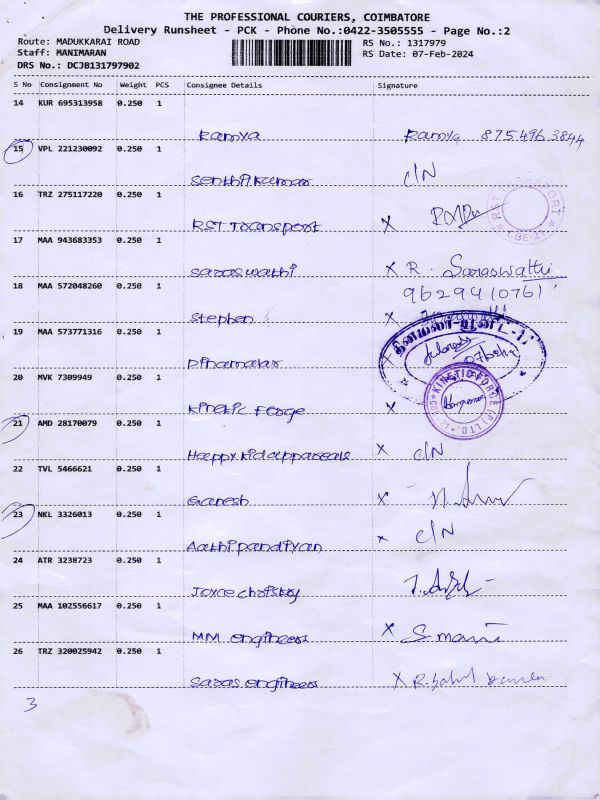 THE PROFESSIONAL COURIERS, COIMBATORE
Delivery Runsheet - PCK - Phone No.:0422-3505555 - Page No.:2
Route: MADUKKARAI ROAD
RS No.: 1317979
Staff: MANIMARAN
RS Date: 07-Feb-2024
DRS No.: DCJB131797902
S No Consignment No Weight PCS Consignee Details Signature
14 KUR 695313958 0.250 1
Ramya Ramya 875496 3844
15 VPL 221230092 0.250 1
Senthilkumar C/N
16 TRZ 275117220 0.250 1
RST Transport X
17 MAA 943683353 0.250 1
Saraswathi X R. Saraswathi
9629410761
18 MAA 572048260 0.250 1
Stephen X
19 MAA 573771316 0.250 1
Dinamalar
20 MVK 7309949 0.250 1
Kinetic Forge X
KINETIC FORGE (P) LTD.
21 AMD 28170079 0.250 1
Happy Kid appareals X C/N
22 TVL 5466621 0.250 1
Ganesh X
23 NKL 3326013 0.250 1
Aathipandiyan X C/N
24 ATR 3238723 0.250 1
25 MAA 102556617 0.250 1
MM engineers X S. mani
26 TRZ 320025942 0.250 1
Saras engineers X
3